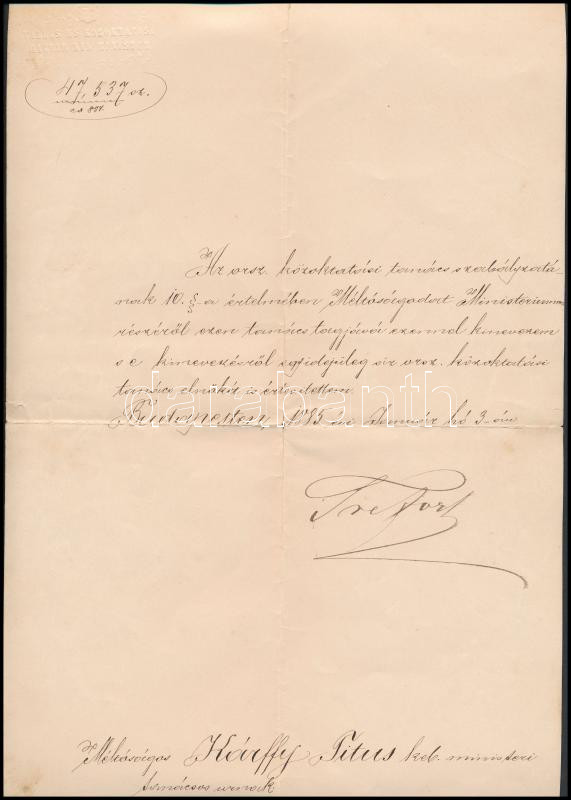 VALLÁS ÉS KÖZOKTATÁSI
47,537 sz.
ex 884.
Az orsz. közoktatási tanács szabályzatá-
nak 10. §-a értelmében Méltóságodat Ministeriumom
részéről ezen tanács tagjává ezennel kinevezem
s e kinevezésről egyidejüleg az orsz. közoktatási
tanács elnökét is értesitettem.
Budapesten, 1885 évi Január hó 3-án
Trefort
Méltóságos Kárffy Titus keb. ministeri
tanácsos urnak
darabanth